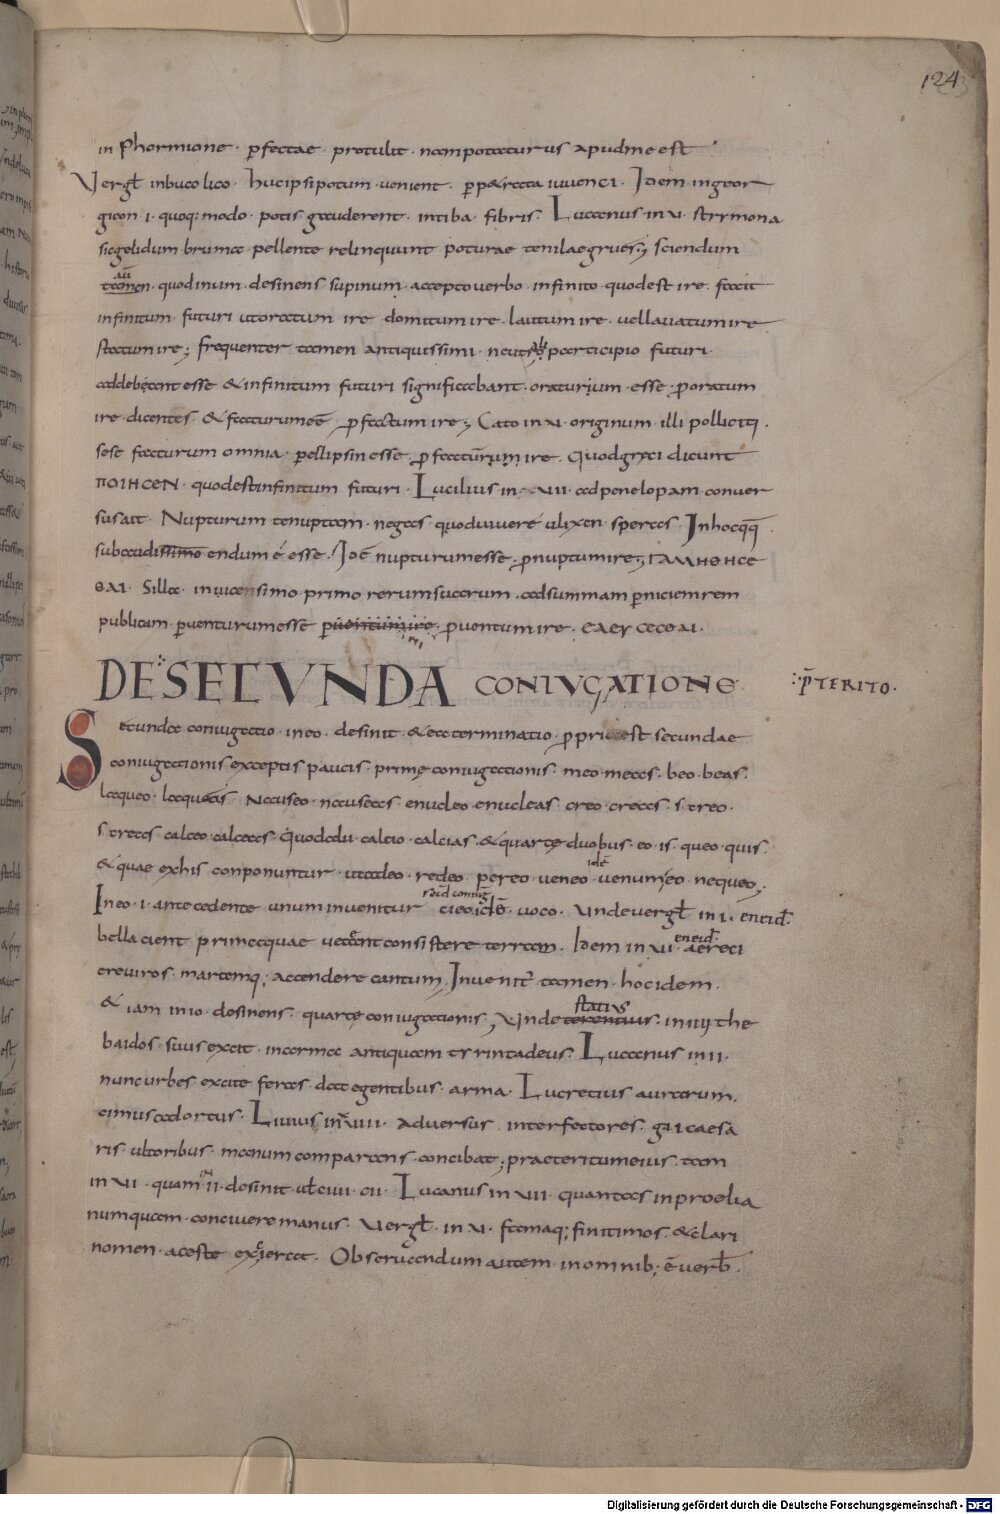 124
in Phormione · p̄fectae · protulit · ncompotaturus apudme est
Vergl̄ inbucolico · hucipsipotum · venient · p̄p&rata iuuenci · Idem ingeor
gicon i · quoq; modo · potis gauderent · intiba · fibris · Lucanus in v · strymona
sicgelidum bruma · pellente relinquunt poturae tenilaegrues; sciendum
aū
tamen · quodinum · desinens supinum · accepto uerbo · infinito quod est ire · facit
infinitum · futuri ut oratum ire domitum ire · lautum ire · uel lauatum ire
statum ire; frequenter tamen antiquissimi · neutro participio futuri ·
addebant esse & infinitum futuri significabant · oraturum · esse · p̄oratum
ire · dicentes & facturum eē p̄ factum ire; Cato in vi · originum · illi polliciti ·
sese facturum omnia · p̄ellipsin esse p̄ facturum ire · Quodgręci dicunt
ΠΟΙΗCΕΝ · quodestinfinitum futuri · Lucilius in · xvii · adpenelopam · conuer
susait · Nupturum tenuptam · negas quoduiuere ulixen speras · Inhocqq̄
subaudissimo endum ē esse · Idē nupturumesse · p̄nuptumire; ΓΑΜΗΘΗCΕ
ΘΑΙ · Silla · inuicensimo primo rerumsuarum · adsummam p̄niciemrem
publicam · p̄uenturumesse p̄uentumire p̄uentumire · ΕΛΕΥCΕCΘΑΙ ·
DE SECVNDA CONIVGATIONE · p̄TERITO ·
Secunda coniugatio · in eo · desinit · & ea terminatio · p̄pria est secundae
coniugationis exceptis paucis · primę coniugationis · meo · meas · beo · beas ·
laqueo · laqueas nauseo · nauseas enucleo · enucleas creo · creas · screo ·
screas calceo · calceas · Quod&du calcio · calcias · & quartę duobus · eo · is · queo · quis
& quae exhis conponuntur · utadeo · redeo pereo · ueneo · uenumeo nequeo;
idē
Ineo · i · antecedente unum inuenitur cieo idē · uoco · Vnde uergl̄ in i · eneid̄
bella cient primaquae uetant consistere terram · Idem in vi · aereci
eneid̄
ereuiros · martemq; accendere cantum · Inuenit̄ tamen · hocidem ·
& iam in io · desinens · quartę coniugationis; Vnde terentius · in iiii the
statius
baidos · suus excit · inarma antiquam tyrintadeus · Lucanus in ii ·
nuncurbes · excite feras · dat egentibus · arma · Lucretius auratum ·
cimus adortus · Liuius in xviii · aduersus interfectores · gai caesa
ris ultoribus · manum comparans · concibat; praeteritumeius · tam
in vi · quam in ii · desinit ul̄ ciui · cii · Lucanus in vii · quantas inproelia
numquam · conciuere manus · Vergl̄ · in v · famaq; finitimos · & clari
nomen · aceste excierat · Obseruandum autem · inomnib; ē uerb̄ ·
Digitalisierung gefördert durch die Deutsche Forschungsgemeinschaft - DFG